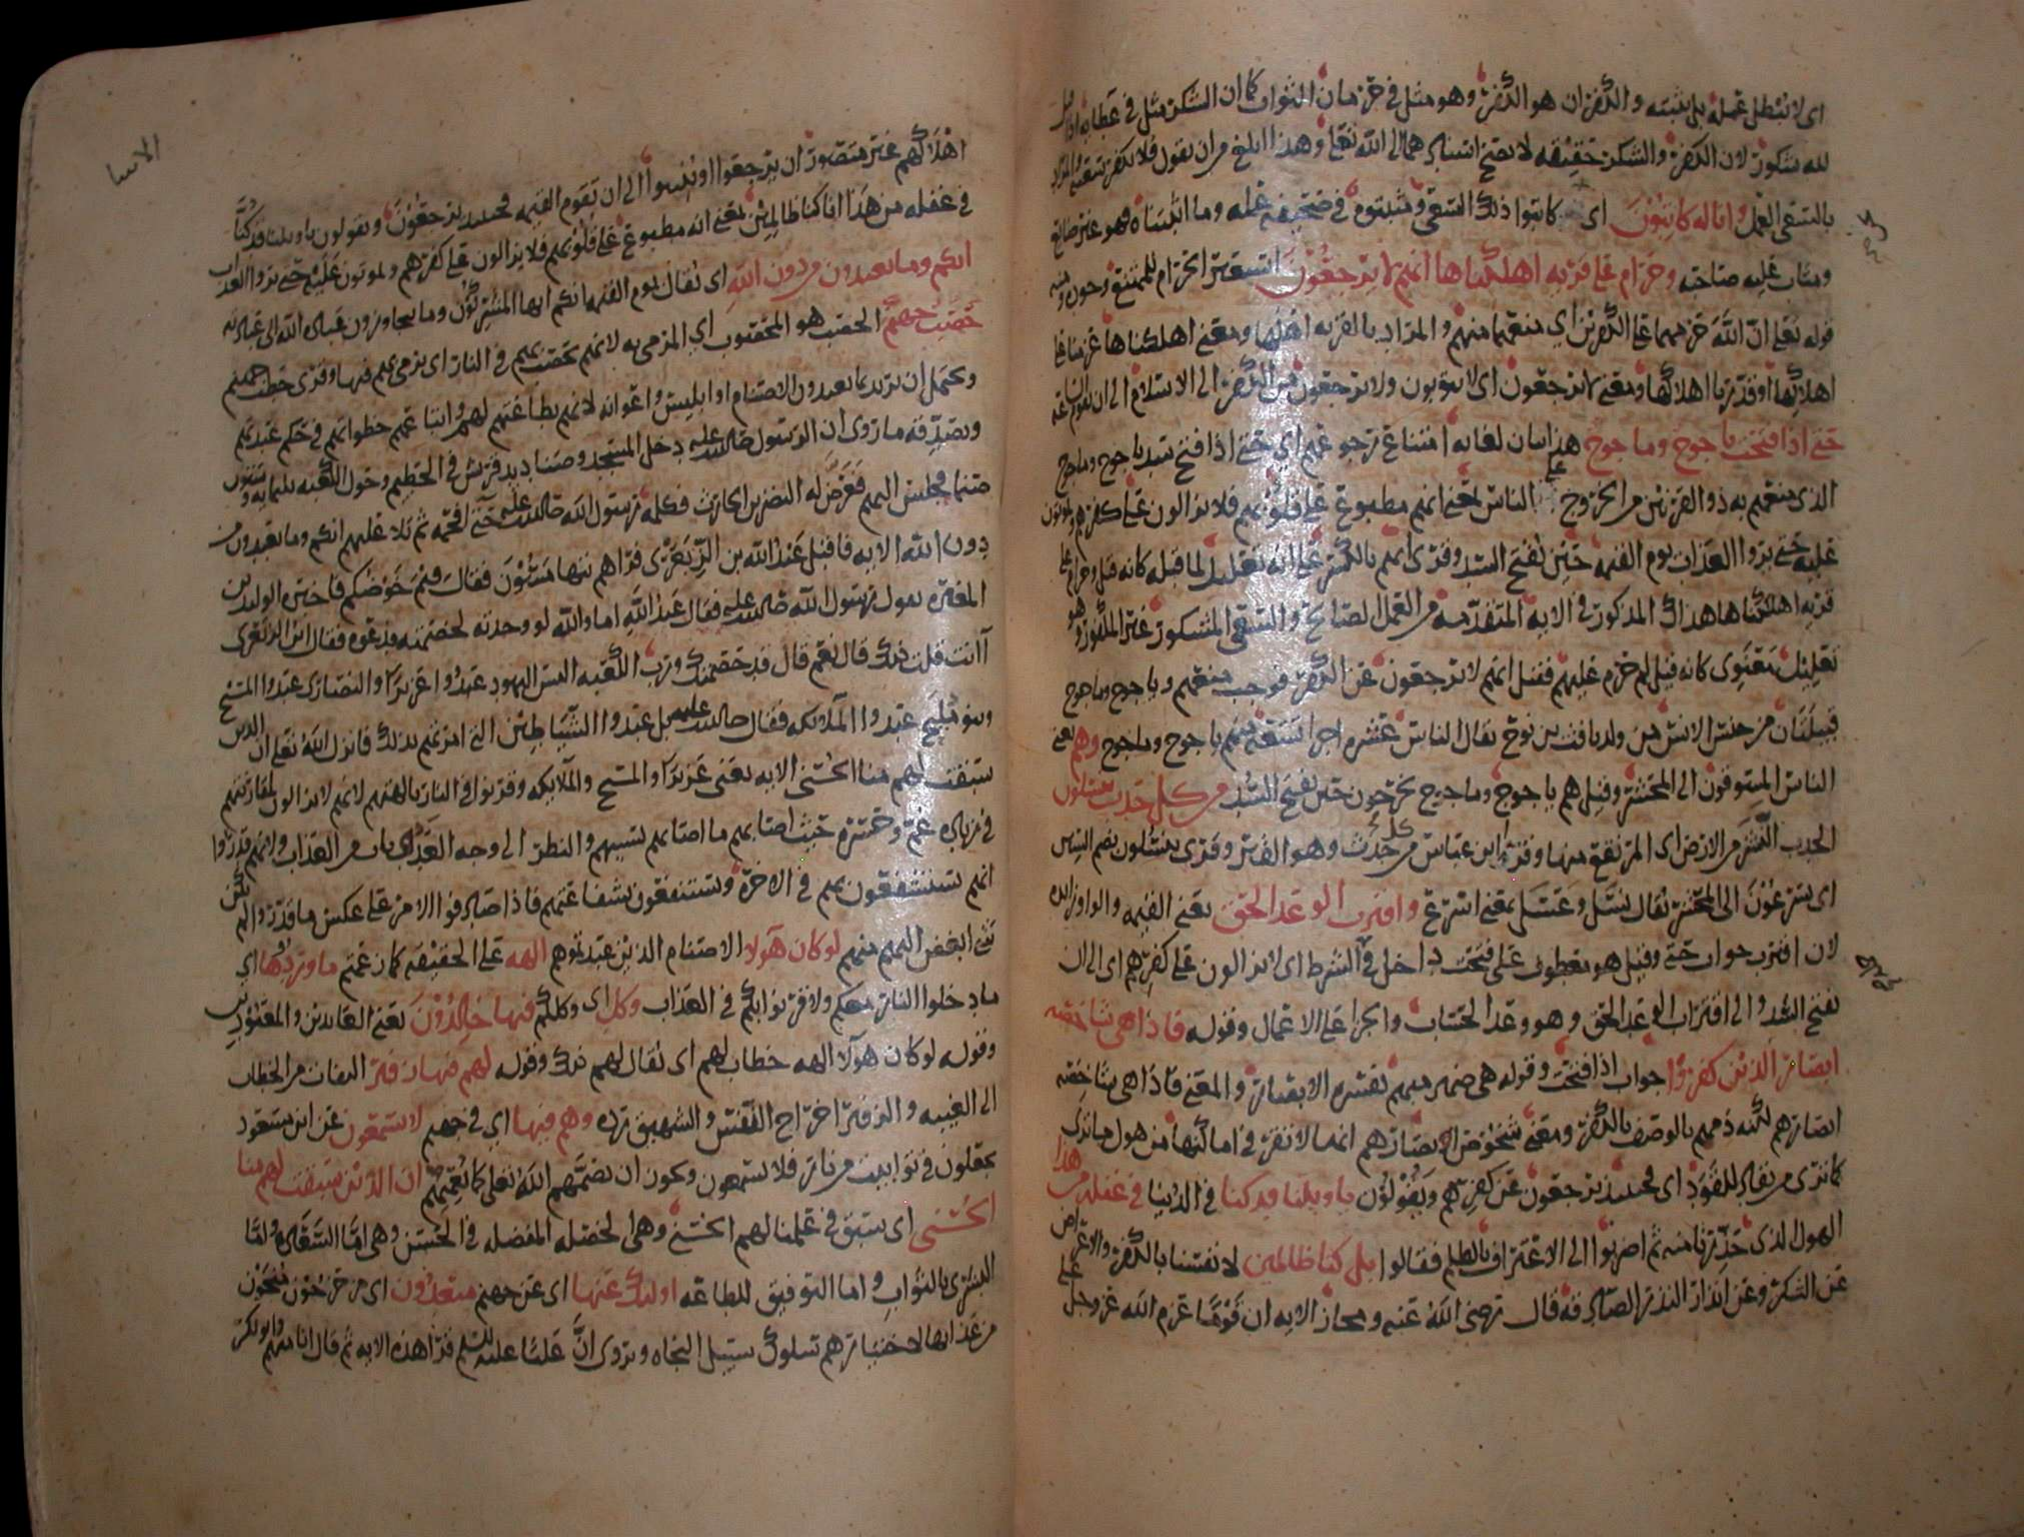 اى لا نبطل عمله بل نثبته والكفران هو الكفر وهو مثل فى حرمان الثواب كما ان الشكر مثل فى عطائه اذا قيل
لله شكور لان الكفر والشكر حقيقه لا يصح اسنادهما الى الله تعالى وهذا ابلغ من ان يقول فلا نكفر سعيه والمراد
بالسعى العمل وانا له كاتبون اى كاتبوا ذلك السعى ومثبتوه فى صحيفه عمله وما اثبتناه فهو غير ضايع
ومثاب عليه صاحبه وحرام على قريه اهلكناها انهم لا يرجعون استعير الحرام للممتنع وجوده ومنه
قوله تعالى ان الله حرمهما على الكفرين اى منعهما منهم والمراد بالقريه اهلها ومعنى اهلكناها عزمنا على
اهلاكها او قدرنا اهلاكها ومعنى لا يرجعون اى لا يتوبون ولا يرجعون من الكفر الى الاسلام الى ان تقوم الساعه
حتى اذا فتحت ياجوج وماجوج هذا بيان لغايه امتناع رجوعهم اى حتى اذا فتح سد ياجوج وماجوج
الذى منعهم به ذو القرنين من الخروج على الناس يعنى انهم مطبوع على قلوبهم فلا يزالون على كفرهم ويموتون
عليه حتى يروا العذاب يوم القيمه حين يفتح السد وقرى انهم بالكسر على انه تعليل لما قبله كانه قيل وحرام على
قريه اهلكناها هذاك المذكور فى الايه المتقدمه من العمل الصالح والسعى المشكور غير المكفور وهو
تعليل معنوى كانه قيل لم حرم عليهم فقيل انهم لا يرجعون عن الكفر فوجب منعهم وياجوج وماجوج
قبيلتان من جنس الانس من ولد يافث بن نوح يقال الناس عشره اجزا تسعه منهم ياجوج وماجوج وهم يعنى
الناس المسوقون الى المحشر وقيل هم ياجوج وماجوج يخرجون حين يفتح السد من كل حدب ينسلون
الحدب النشز من الارض اى المرتفع منها وقرا ابن عباس من كل جدث وهو القبر وقرى ينسلون بضم السين
اى يسرعون الى المحشر يقال نسل وعسل بمعنى اسرع واقترب الوعد الحق يعنى القيمه والواو زايده
لان اقترب جواب حتى وقيل هو معطوف على فتحت داخل فى الشرط اى لا يزالون على كفرهم اى الى ان
يفتح السد والى اقتراب الوعد الحق وهو وعد الحساب والجزا على الاعمال وقوله فاذا هى شاخصه
ابصار الذين كفروا جواب اذا فتحت وقوله هى ضمير مبهم تفسره الابصار والمعنى فاذا هى شاخصه
ابصارهم لكنه ذمهم بالوصف بالكفر ومعنى شخوص الابصار هم انها لا تقر فى اماكنها من هول ما ترى
كما ترى من يقاد للقود اى فحينئذ يرجعون عن كفرهم ويقولون يا ويلنا قد كنا فى الدنيا فى غفله من هذا
الهول الذى حذرنا منه ثم اضربوا الى الاعتراف بالظلم فقالوا بل كنا ظالمين لانفسنا بالكفر والاعراض
عن الشكر وعن انذار النذر الصادقه قال رضى الله عنه ومجاز الايه ان قوما عزم الله عز وجل على
الانبيا
اهلاكهم غير متصور ان يرجعوا او ينيبوا الى ان تقوم القيمه فحينئذ يرجعون ويقولون يا ويلنا قد كنا
فى غفله من هذا انا كنا ظالمين يعنى انه مطبوع على قلوبهم فلا يزالون على كفرهم ويموتون عليه حتى يروا العذاب
انكم وما تعبدون من دون الله اى يقال يوم القيمه انكم ايها المشركون وما يجاوزون عباده الله الى عبادته
حصب جهنم الحصب هو المحصوب اى المرمى به لانهم يحصب بهم فى النار اى يرمى بهم فيها وقرى حطب جهنم
ويحتمل ان يريد بما تعبدون الاصنام او ابليس واعوانه لانهم بطاعتهم لهم واتباعهم خطواتهم فى حكم عبدتهم
ويصدقه ما روى ان الرسول صلى الله عليه دخل المسجد وصناديد قريش فى الحطيم وحول الكعبه ثلثمايه وستون
صنما فجلس اليهم فعرض له النضر بن الحارث فكلمه رسول الله صلى الله عليه حتى افحمه ثم تلا عليهم انكم وما تعبدون من
دون الله الايه فاقبل عبد الله بن الزبعرى فراهم يتهامسون فقال فيم خوضكم فاخبره الوليد بن
المغيره بقول رسول الله صلى الله عليه فقال عبد الله اما والله لو وجدته لخصمته فدعوه فقال ابن الزبعرى
آانت قلت ذلك قال نعم قال قد خصمتك ورب الكعبه اليس اليهود عبدوا عزيرا والنصارى عبدوا المسيح
وبنو مليح عبدوا الملايكه فقال صلى الله عليه بل عبدوا الشياطين التى امرتهم بذلك فانزل الله تعالى ان الذين
سبقت لهم منا الحسنى الايه يعنى عزيرا والمسيح والملايكه وقرنوا فى النار بالهتهم لانهم لا يزالون لمقارنتهم
فى زياده غم وحسره حيث اصابهم ما اصابهم بسببهم والنظر الى وجه العدو باب من العذاب ولانهم قدروا
انهم يستشفعون بهم فى الاخره ويستنفعون بشفاعتهم فاذا صادفوا الامر على عكس ما قدروا لم يكن
شى ابغض اليهم منهم لو كان هولا الاصنام الذين عبدتموهم الهه على الحقيقه كما زعمتم ما وردوها اى
ما دخلوا النار معكم ولا قرنوا بكم فى العذاب وكل اى وكلكم فيها خالدون يعنى العابدين والمعبودين
وقوله لو كان هولا الهه خطاب لهم اى يقال لهم ذلك وقوله لهم فيها زفير التفات من الخطاب
الى الغيبه والزفير اخراج النفس والشهيق رده وهم فيها اى فى جهنم لا يسمعون عن ابن مسعود
يجعلون فى توابيت من نار فلا يسمعون ويجوز ان يصمهم الله تعالى كما يعميهم ان الذين سبقت لهم منا
الحسنى اى سبق فى علمنا لهم الحسنى وهى الخصله المفضله فى الحسن وهى اما السعاده واما
البشرى بالثواب واما التوفيق للطاعه اولئك عنها اى عن جهنم مبعدون اى مزحزحون منحون
من عذابها لاختيارهم سلوك سبيل النجاه ويروى ان عليا عليه السلم قرا هذه الايه ثم قال انا منهم وابو بكر